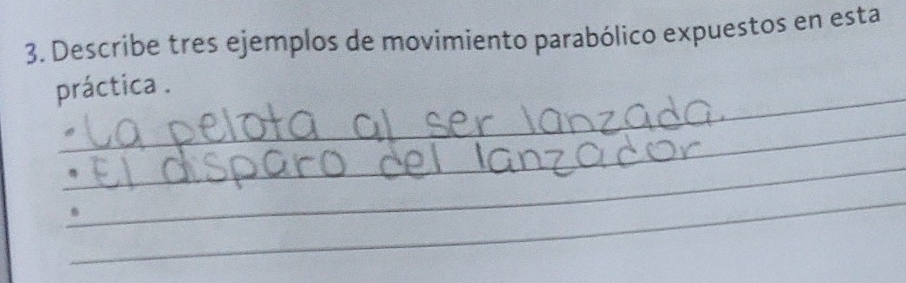 3. Describe tres ejemplos de movimiento parabólico expuestos en esta
práctica .
• La pelota al ser lanzada.
• El disparo del lanzador
•